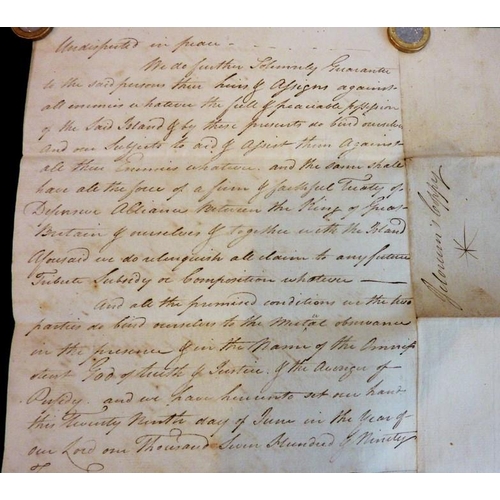 Undisputed in peace
We do further Solemnly Guarantee
to the said persons their heirs & Assigns against
all enemies whatever the full & peaceable possession
of the Said Island & by these presents do bind ourselves
and our Subjects to aid & Assist them Against
all their Enemies whatever and the same shall
have all the force of a firm & faithful Treaty of
Defensive Alliance Between the King of Great
Britain & ourselves & together with the Island
Aforesaid we do relinquish all claim to any future
Tribute Subsidy or Composition whatever —
And all the promised conditions we the two
parties do bind ourselves to the Mutual observance
in the presence & in the Name of the Omnip
otent God of truth & Justice, & the Avenger of
Perfidy and we have hereunto set our hand
this Twenty Ninth day of June in the Year of
our Lord one Thousand Seven Hundred & Ninety
Coppy